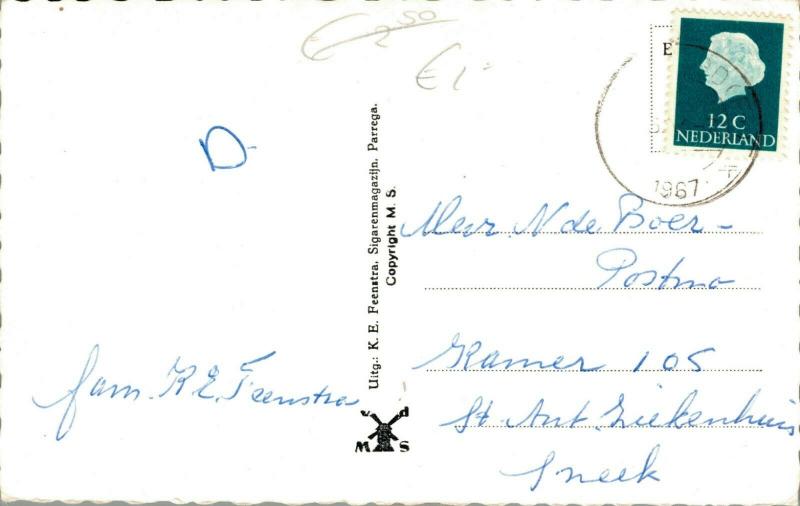 € 2 50
€ 1 -
E
12 C
NEDERLAND
1967
D
Uitg.: K. E. Feenstra, Sigarenmagazijn, Parrega.
Copyright M. S.
Mevr. N de Boer -
Postma
Kamer 105
St. Ant. Ziekenhuis
Sneek
fam. K E. Feenstra
v d
M S